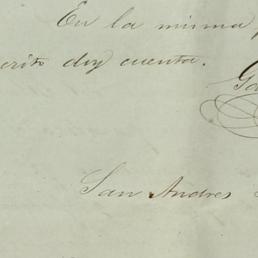 En la misma
crito doy cuenta.
Ga
San Andres